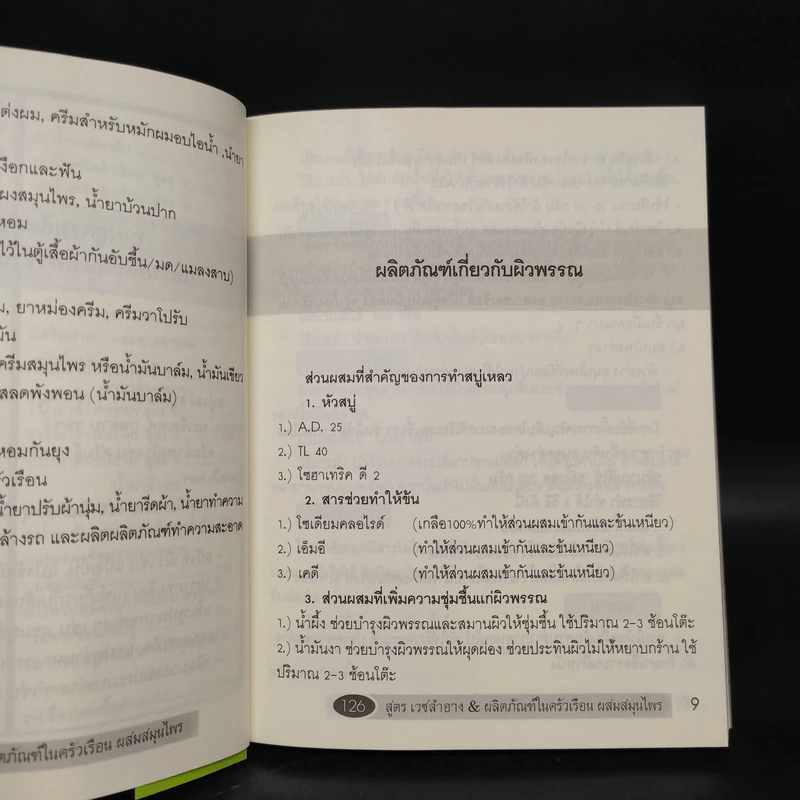 ต่งผม, ครีมสำหรับหมักผมอบไอน้ำ ,น้ำยา
งือกและฟัน
ผงสมุนไพร, น้ำยาบ้วนปาก
หอม
ไว้ในตู้เสื้อผ้ากันอับชื้น/มด/แมลงสาบ)
ม, ยาหม่องครีม, ครีมวาโปรับ
มัน
ครีมสมุนไพร หรือน้ำมันบาล์ม, น้ำมันเขียว
สลดพังพอน (น้ำมันบาล์ม)
หอมกันยุง
รัวเรือน
น้ำยาปรับผ้านุ่ม, น้ำยารีดผ้า, น้ำยาทำความ
ล้างรถ และผลิตผลิตภัณฑ์ทำความสะอาด
ตภัณฑ์ในครัวเรือน ผสมสมุนไพร
ผลิตภัณฑ์เกี่ยวกับผิวพรรณ
ส่วนผสมที่สำคัญของการทำสบู่เหลว
1. หัวสบู่
1.) A.D. 25
2.) TL 40
3.) โซฮาเทริค ดี 2
2. สารช่วยทำให้ข้น
1.) โซเดียมคลอไรด์ (เกลือ100%ทำให้ส่วนผสมเข้ากันและข้นเหนียว)
2.) เอ็มอี (ทำให้ส่วนผสมเข้ากันและข้นเหนียว)
3.) เคดี (ทำให้ส่วนผสมเข้ากันและข้นเหนียว)
3. ส่วนผสมที่เพิ่มความชุ่มชื้นแก่ผิวพรรณ
1.) น้ำผึ้ง ช่วยบำรุงผิวพรรณและสมานผิวให้ชุ่มชื้น ใช้ปริมาณ 2-3 ช้อนโต๊ะ
2.) น้ำมันงา ช่วยบำรุงผิวพรรณให้ผุดผ่อง ช่วยประทินผิวไม่ให้หยาบกร้าน ใช้
ปริมาณ 2-3 ช้อนโต๊ะ
126 สูตร เวชสำอาง & ผลิตภัณฑ์ในครัวเรือน ผสมสมุนไพร 9